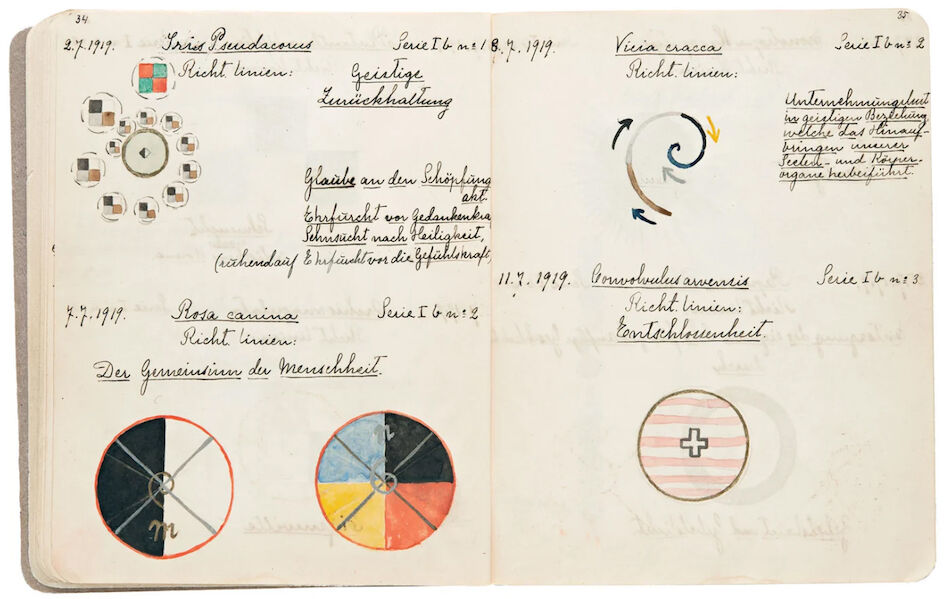 34
2.7.1919. Iris Pseudacorus Serie I b nº 1
Richt. linien: Geistige
Zurückhaltung
Glaube an den Schöpfung
akt.
Ehrfurcht vor Gedankenkra
Sehnsucht nach Heiligkeit,
(ruhend auf Ehrfurcht vor die Gefühlskraft)
7.7.1919. Rosa canina Serie I b nº 2
Richt. linien:
Der Gemeinsinn der Menschheit.
m
n
35
8.7.1919. Vicia cracca Serie I b nº 2
Richt. linien:
Unternehmungslust
in geistigen Beziehung
welche das Hinauf-
bringen unserer
Seelen- und Körper-
organe herbeiführt.
11.7.1919. Convolvulus arvensis Serie I b nº 3
Richt. linien:
Entschlossenheit.